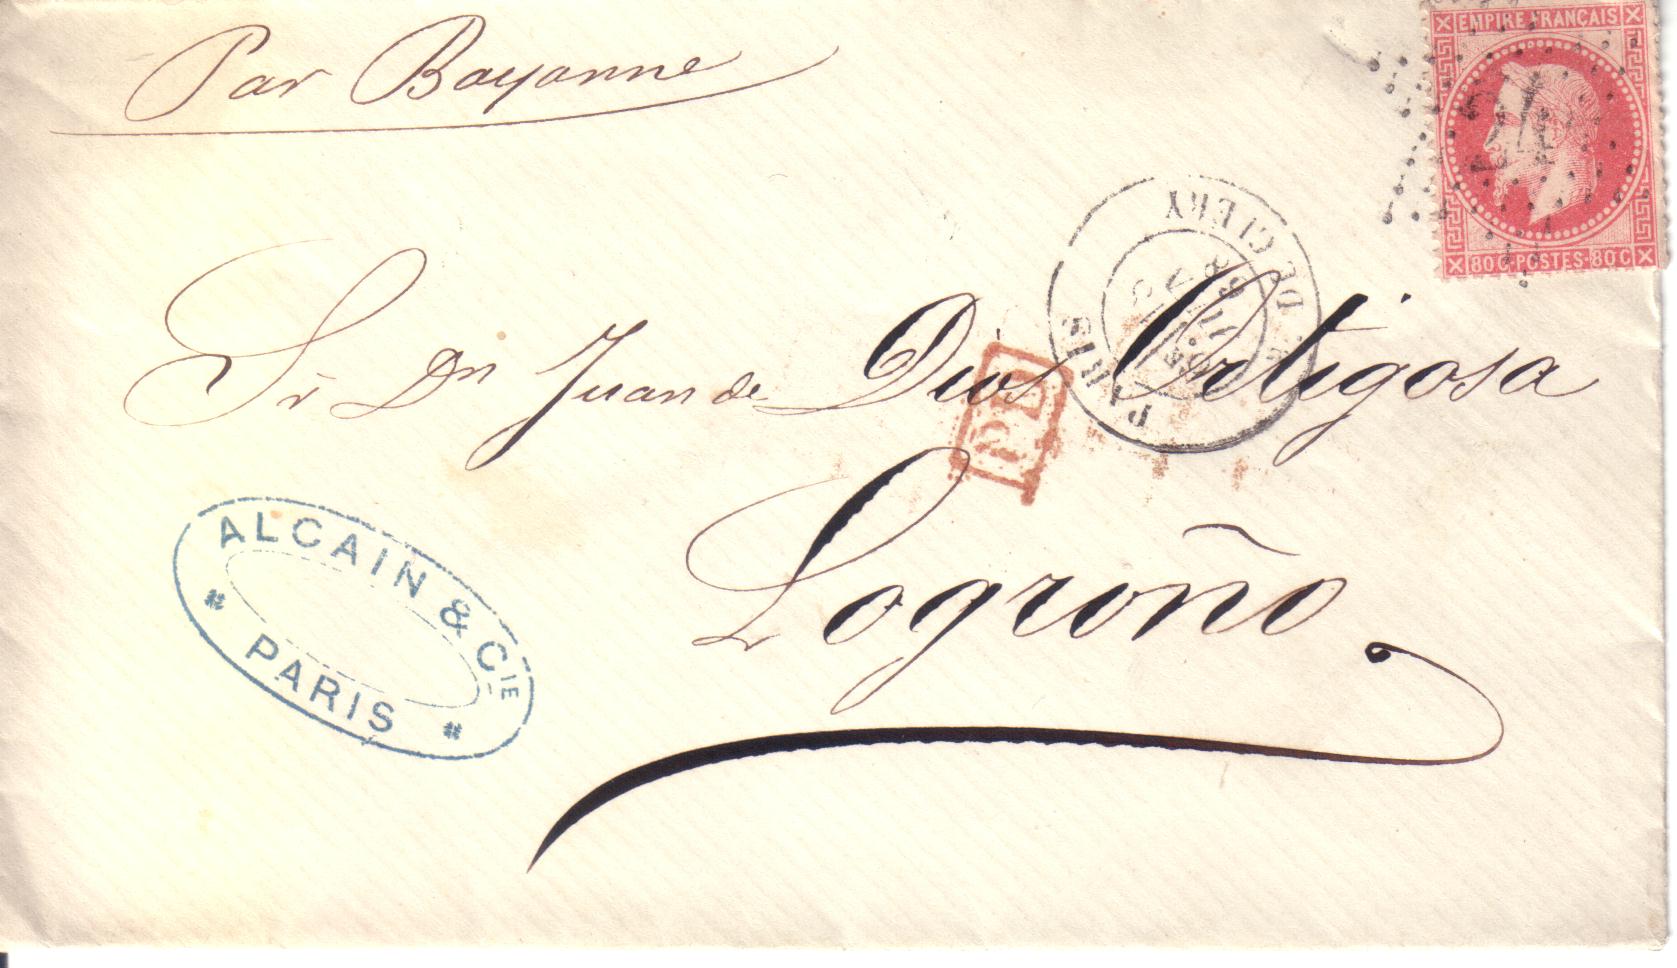 Par Bayonne
EMPIRE FRANÇAIS
24
80 C·POSTES·80 C
PARIS
R. DE CLERY
68
Sr Dn Juan de Dios Ortigosa
PD
Logroño
ALCAIN & CIE
PARIS